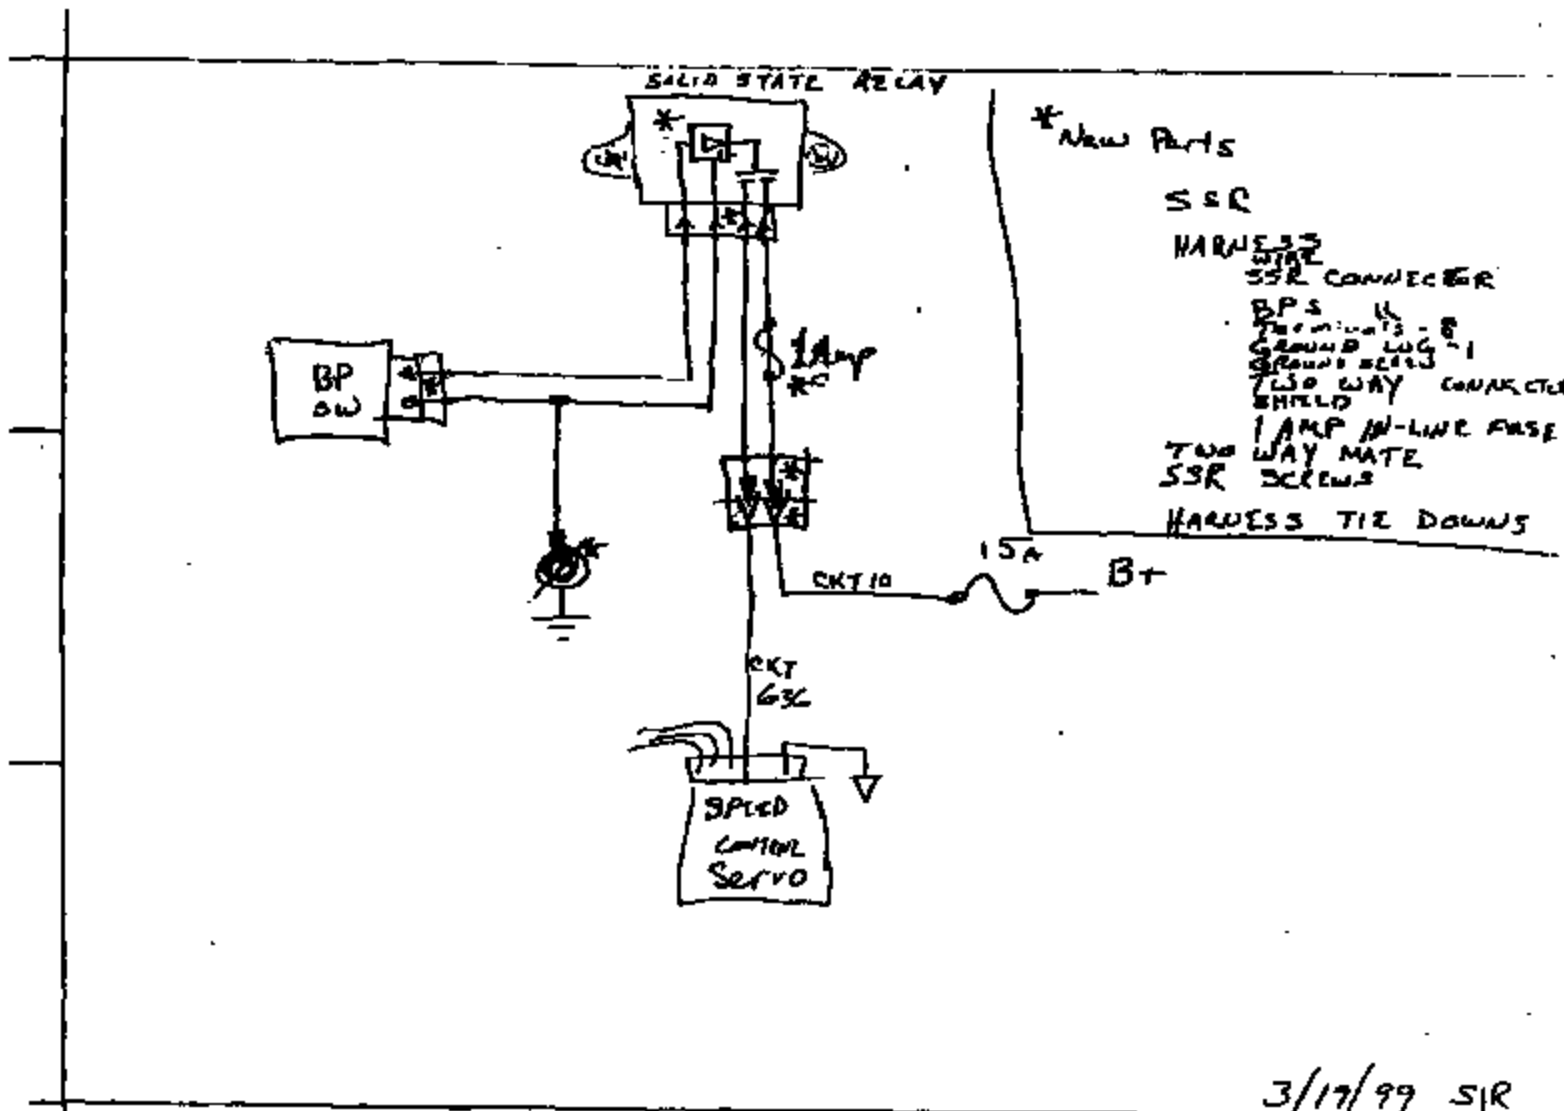 SOLID STATE RELAY
*
* New Parts
SSR
HARNESS
WIRE
SSR CONNECTOR
BPS "
Terminals - 8
GROUND LUG - 1
GROUND SCREW
TWO WAY CONNECTOR
SHIELD
1 AMP IN-LINE FUSE
TWO WAY MATE
SSR SCREWS
HARNESS TIE DOWNS
*
1 Amp
*
BP
SW
*
*
*
*
15A
B+
CKT 10
CKT
636
SPEED
CONTROL
Servo
3/17/99 SJR